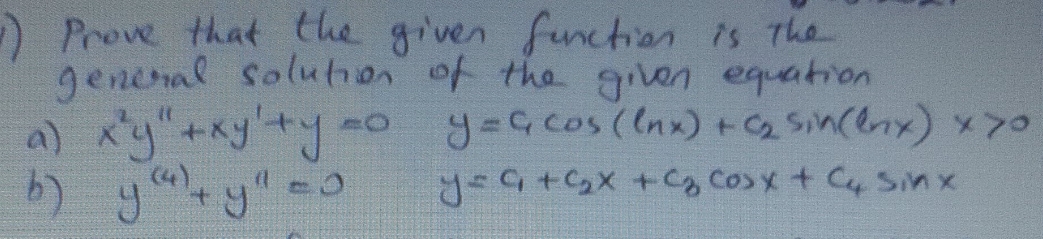 1) Prove that the given function is the
general solution of the given equation
a) x²y" + xy' + y = 0 y = C₁ cos(lnx) + C₂ sin(lnx) x>0
b) y⁽⁴⁾ + y" = 0 y = C₁ + C₂x + C₃ cosx + C₄ sinx